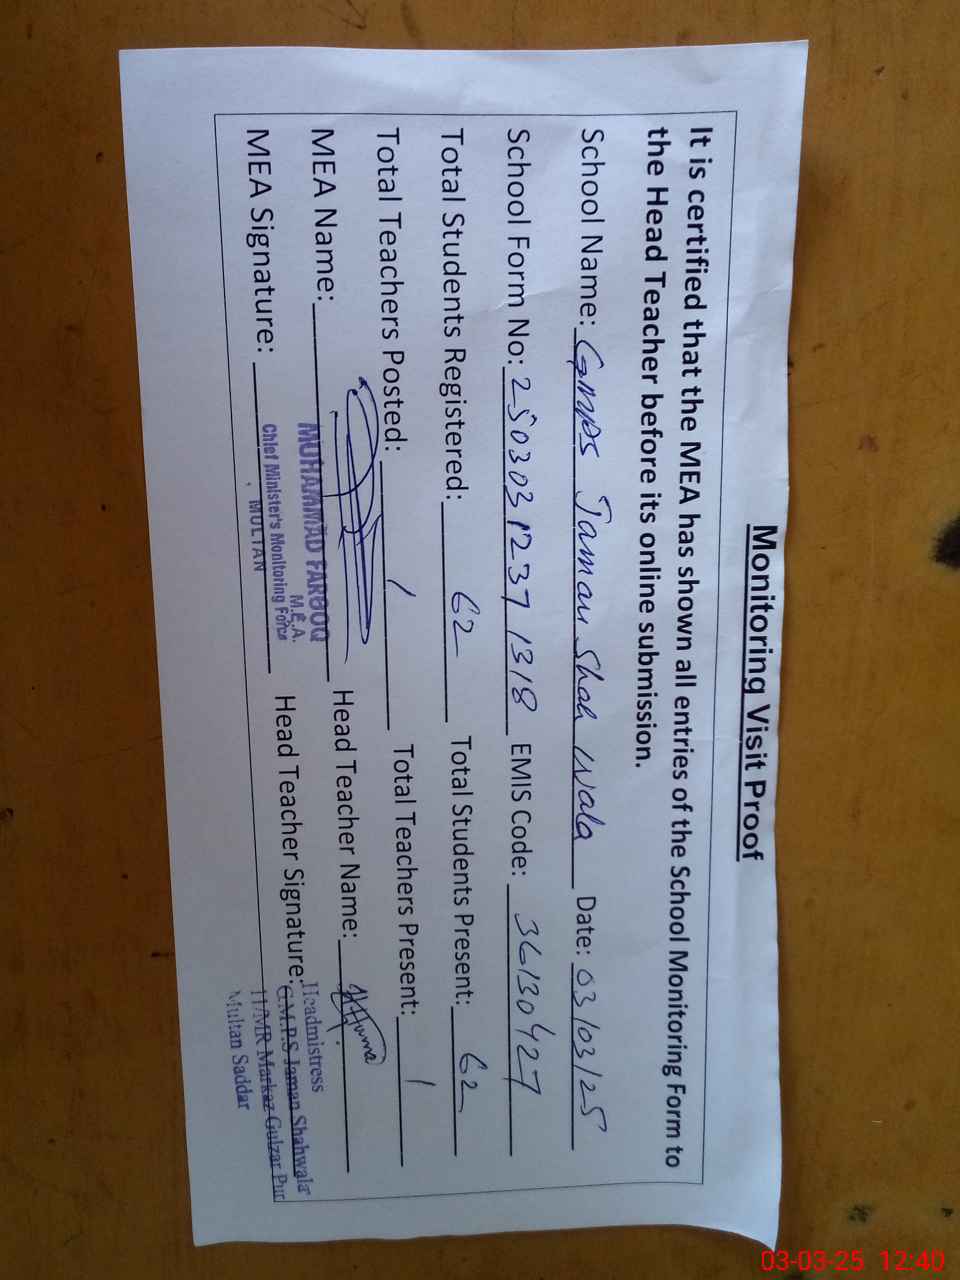 Monitoring Visit Proof
It is certified that the MEA has shown all entries of the School Monitoring Form to
the Head Teacher before its online submission.
School Name: GMPS Jaman Shah Wala Date: 03/03/25
School Form No: 2503031237 1318 EMIS Code: 36130427
Total Students Registered: 62 Total Students Present: 62
Total Teachers Posted: 1 Total Teachers Present: 1
MEA Name: Head Teacher Name: Huma
MUHAMMAD FAROOQ
M.E.A.
MEA Signature: Head Teacher Signature:
Chief Minister's Monitoring Force
MULTAN
Headmistress
G.M.P.S Jaman Shahwala
11/MR Markaz Gulzar Pur
Multan Saddar
03-03-25 12:40